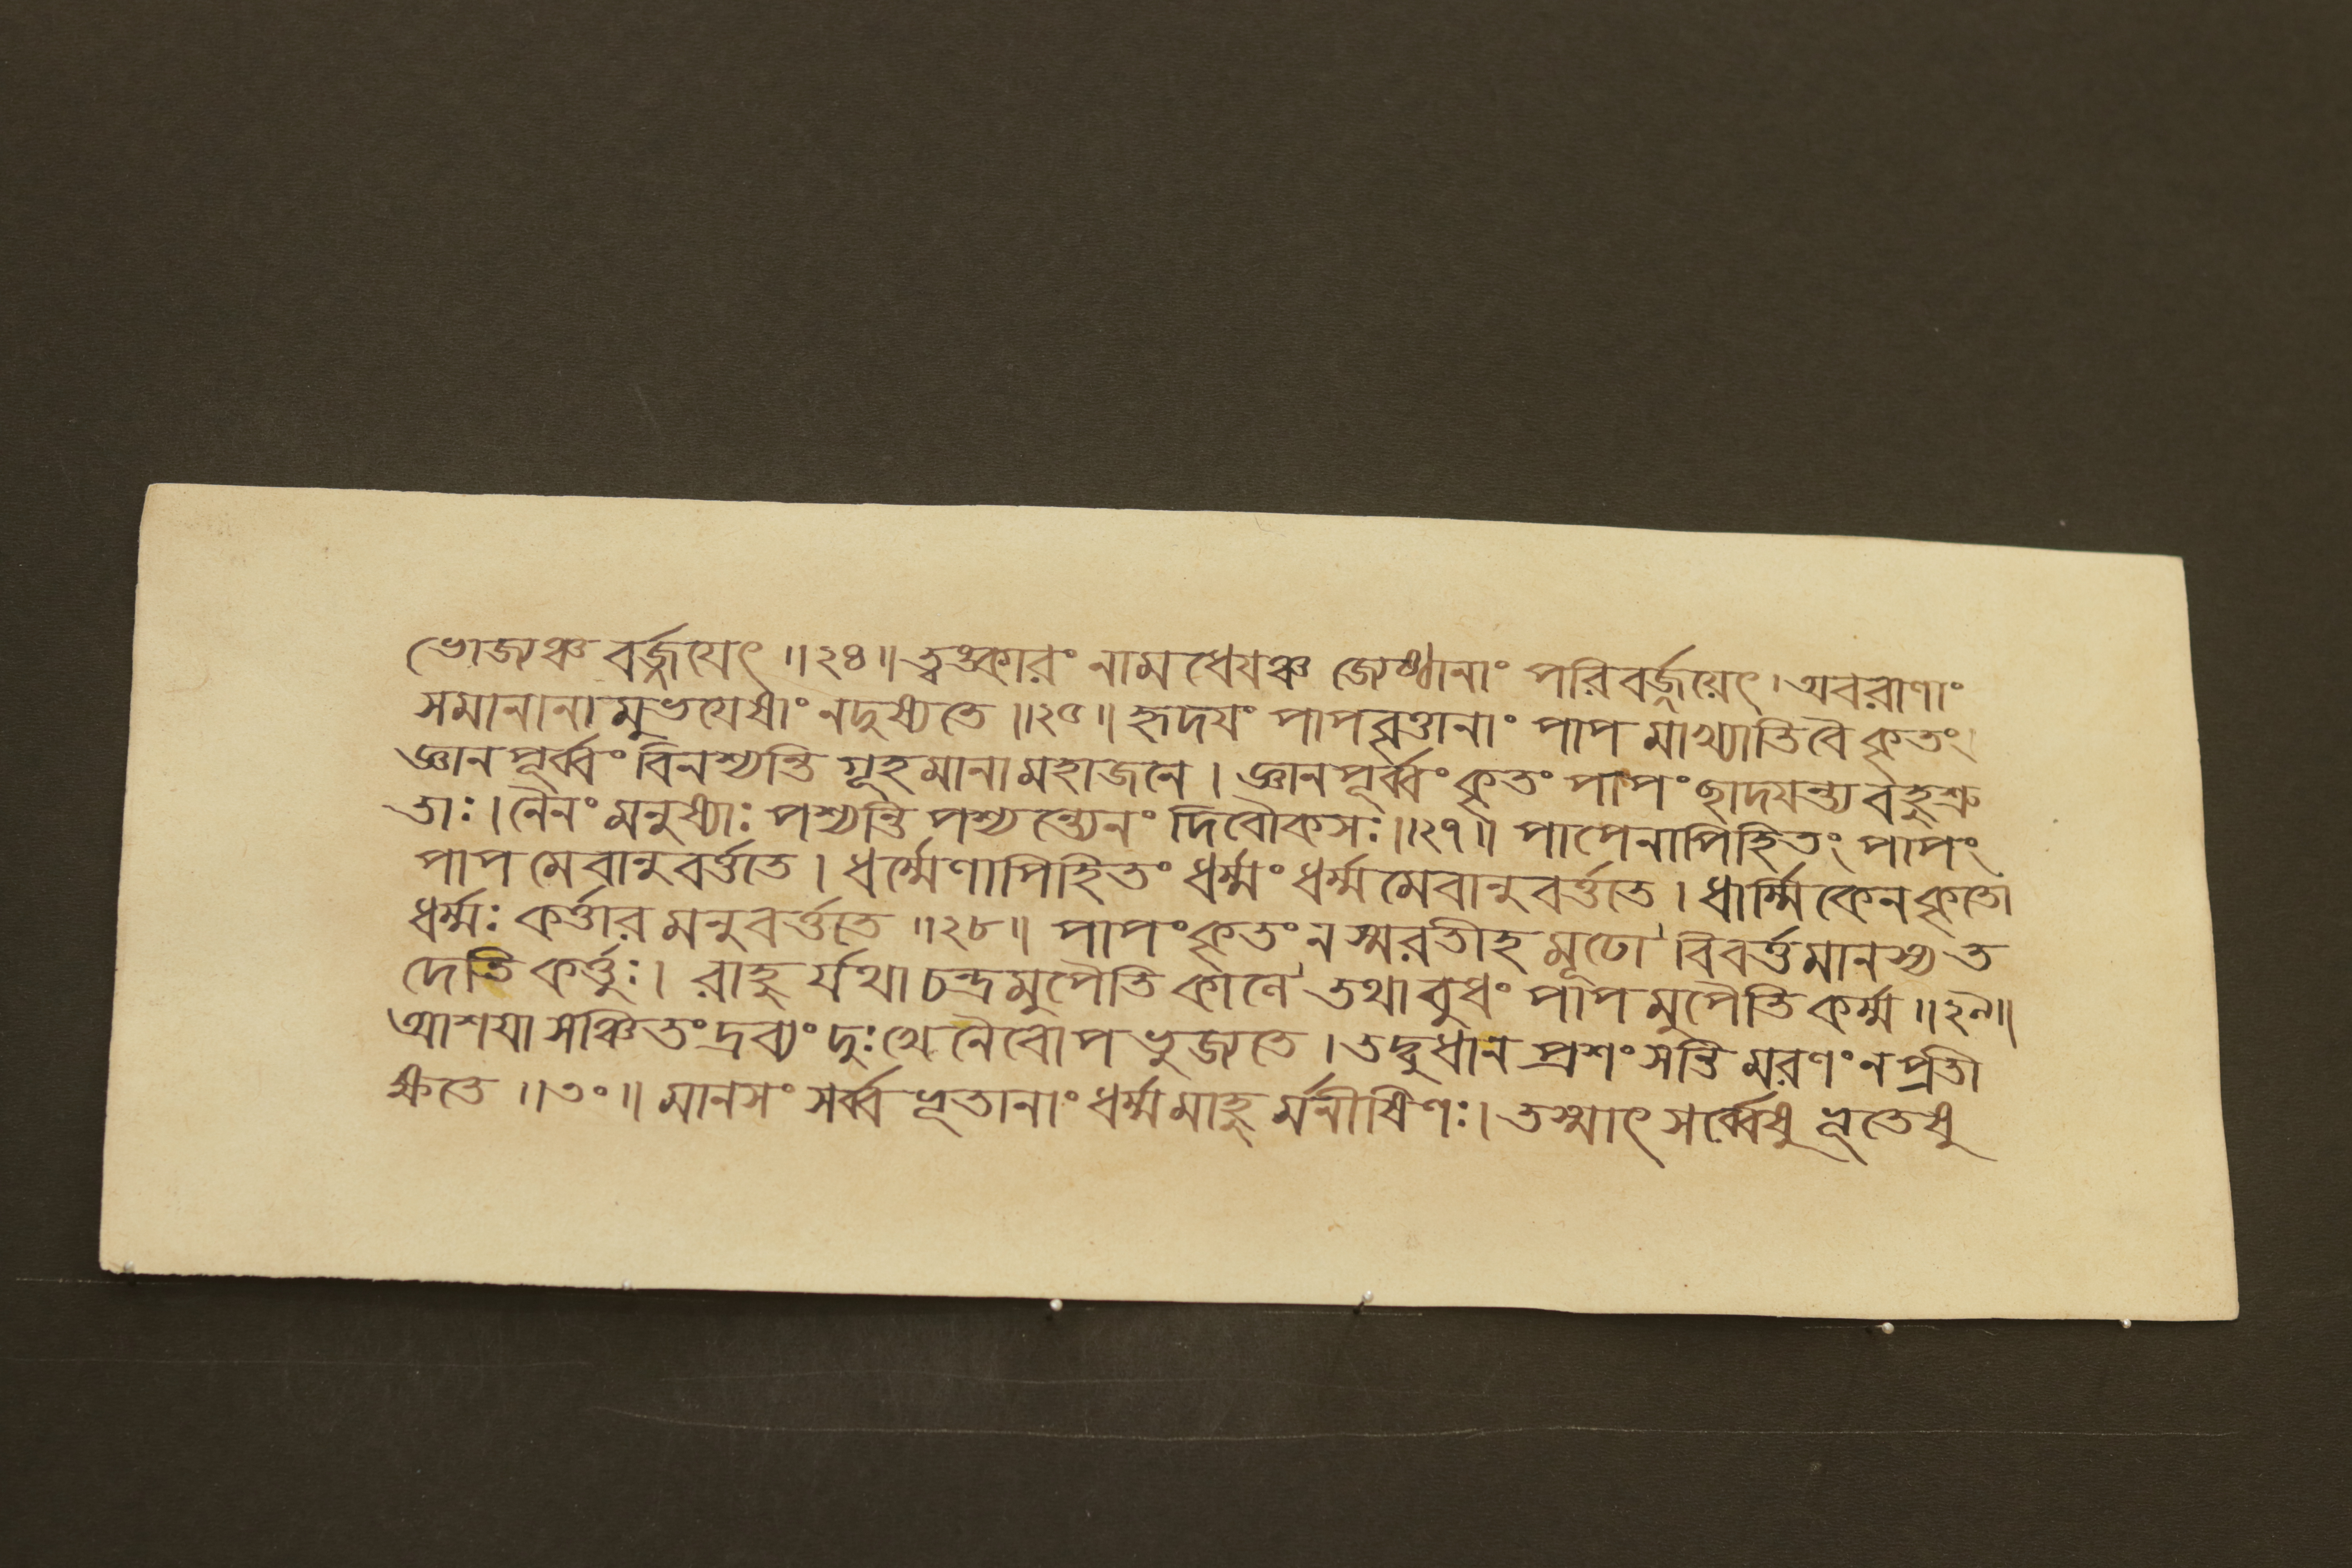 ভোজ্যঞ্চ বর্জ্জয়েৎ ॥২৪॥ ত্বঙ্কারং নামধেযঞ্চ জ্যেষ্ঠানাং পরিবর্জ্জয়েৎ। অবরাণাং
সমানানামুভযেষাং নদুষ্যতে ॥২৫॥ হৃদযং পাপবৃত্তানাং পাপমাখ্যাতিবৈকৃতং।
জ্ঞানপূর্ব্বং বিনশ্যন্তি গূহমানামহাজনে। জ্ঞানপূর্ব্বং কৃতং পাপং ছাদযন্ত্যবহুশ্রু
তাঃ। নৈনং মনুষ্যাঃ পশ্যন্তি পশ্যন্ত্যেনং দিবৌকসঃ॥২৭॥ পাপেনাপিহিতং পাপং
পাপমেবানুবর্ত্ততে। ধর্ম্মেণাপিহিতং ধর্ম্মং ধর্ম্মমেবানুবর্ত্ততে। ধার্ম্মিকেনকৃতো
ধর্ম্মঃ কর্ত্তারমনুবর্ত্ততে ॥২৮॥ পাপং কৃতং নস্মরতীহ মূঢো বিবর্ত্তমানস্য ত
দেতি কর্ত্তুঃ। রাহুর্যথা চন্দ্রমুপৈতি কাণে তথাবুধং পাপমুপৈতি কর্ম্ম ॥২৯॥
আশযা সঞ্চিতং দ্রব্যং দুঃখেনৈবোপভুজ্যতে। তদ্বুধান প্রশংসন্তি মরণং নপ্রতী
ক্ষতে ॥৩০॥ মানসং সর্ব্বভূতানাং ধর্ম্মমাহুর্মনীষিণঃ। তস্মাৎ সর্ব্বেষু ভূতেষু